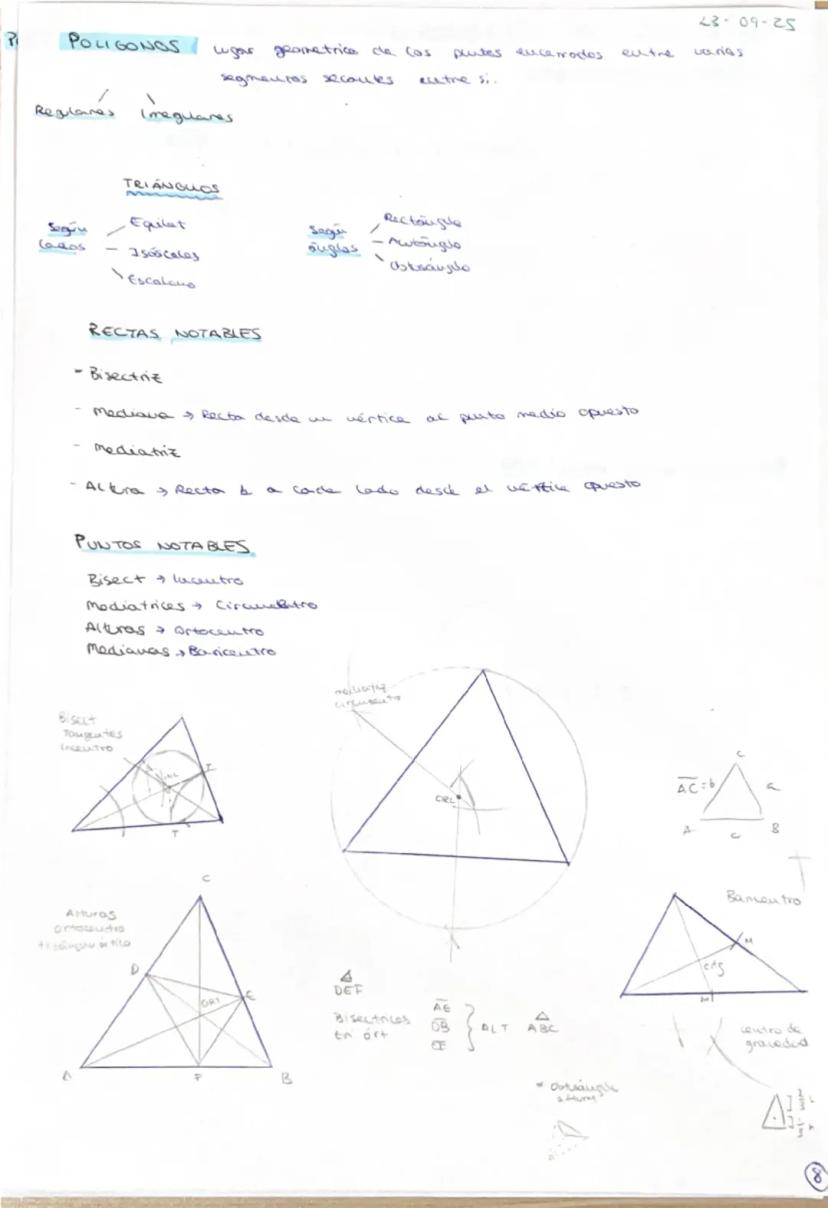 23-09-25
POLIGONOS lugar geometrico de los puntos encerrados entre varios
segmentos secantes entre si.
Regulares Irregulares
TRIÁNGULOS
Según
lados
Equilat
Isósceles
Escaleno
Según
ángulos
Rectángulo
Acutángulo
Obtusángulo
RECTAS NOTABLES
- Bisectriz
- Mediana → Recta desde un vértice al punto medio opuesto
- Mediatriz
- Altura → Recta ⊥ a cada lado desde el vértice opuesto
PUNTOS NOTABLES
Bisect → Incentro
Mediatrices → Circuncentro
Alturas → Ortocentro
Medianas → Baricentro
Bisect
Tangentes
incentro
INC
T
T
mediatriz
circuncentro
CIRC
C
AC = b a
A c B
Alturas
Ortocentro
C
D
ORT
E
A F B
△
DEF
Bisectrices
tri órt
AE
DB
CF
ALT △
ABC
Baricentro
M
cdg
M
centro de
gravedad
2/3 h
1/3 h
* Obtusángulo
altura
8